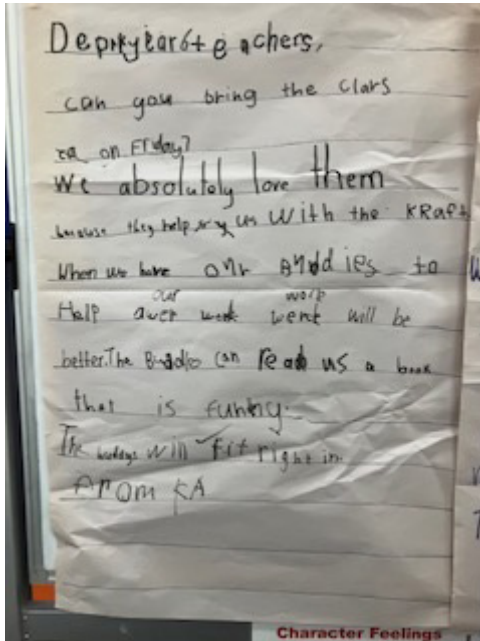 Dear year 6 teachers,
can you bring the clars
on Friday?
We absolutely love them
because they help us with the KRaft
When we have our Buddies to
our work
Help over work went will be
better. The Buddies can read us a book
that is funny.
The buddys will fit right in.
From KA
Character Feelings